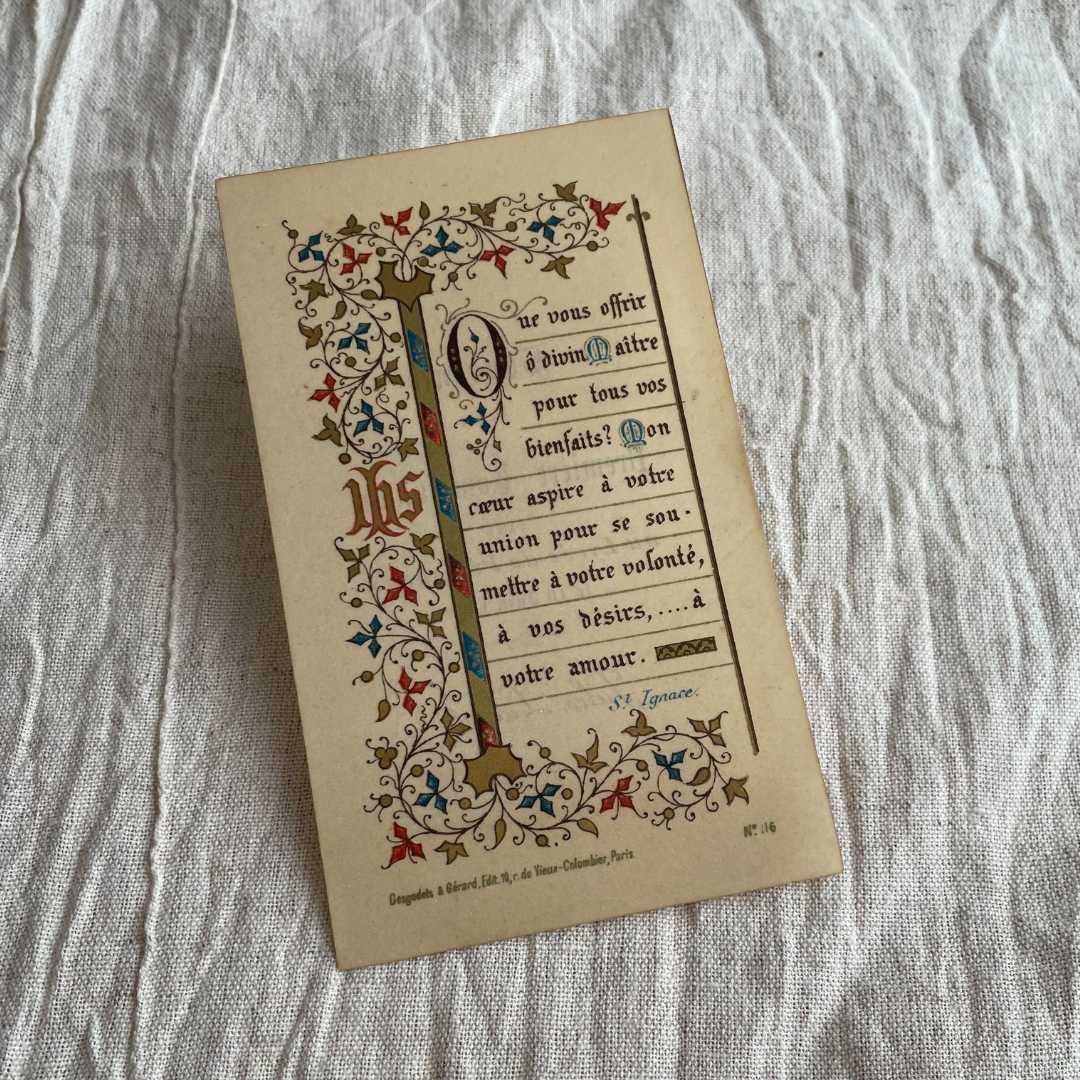 Que vous offrir
ô divin Maître
pour tous vos
bienfaits? Mon
cœur aspire à votre
union pour se sou-
mettre à votre volonté,
à vos désirs,....à
votre amour.
St Ignace.
IHS
Nº 116
Desgodets & Gérard, Edit. 10, r. du Vieux-Colombier, Paris